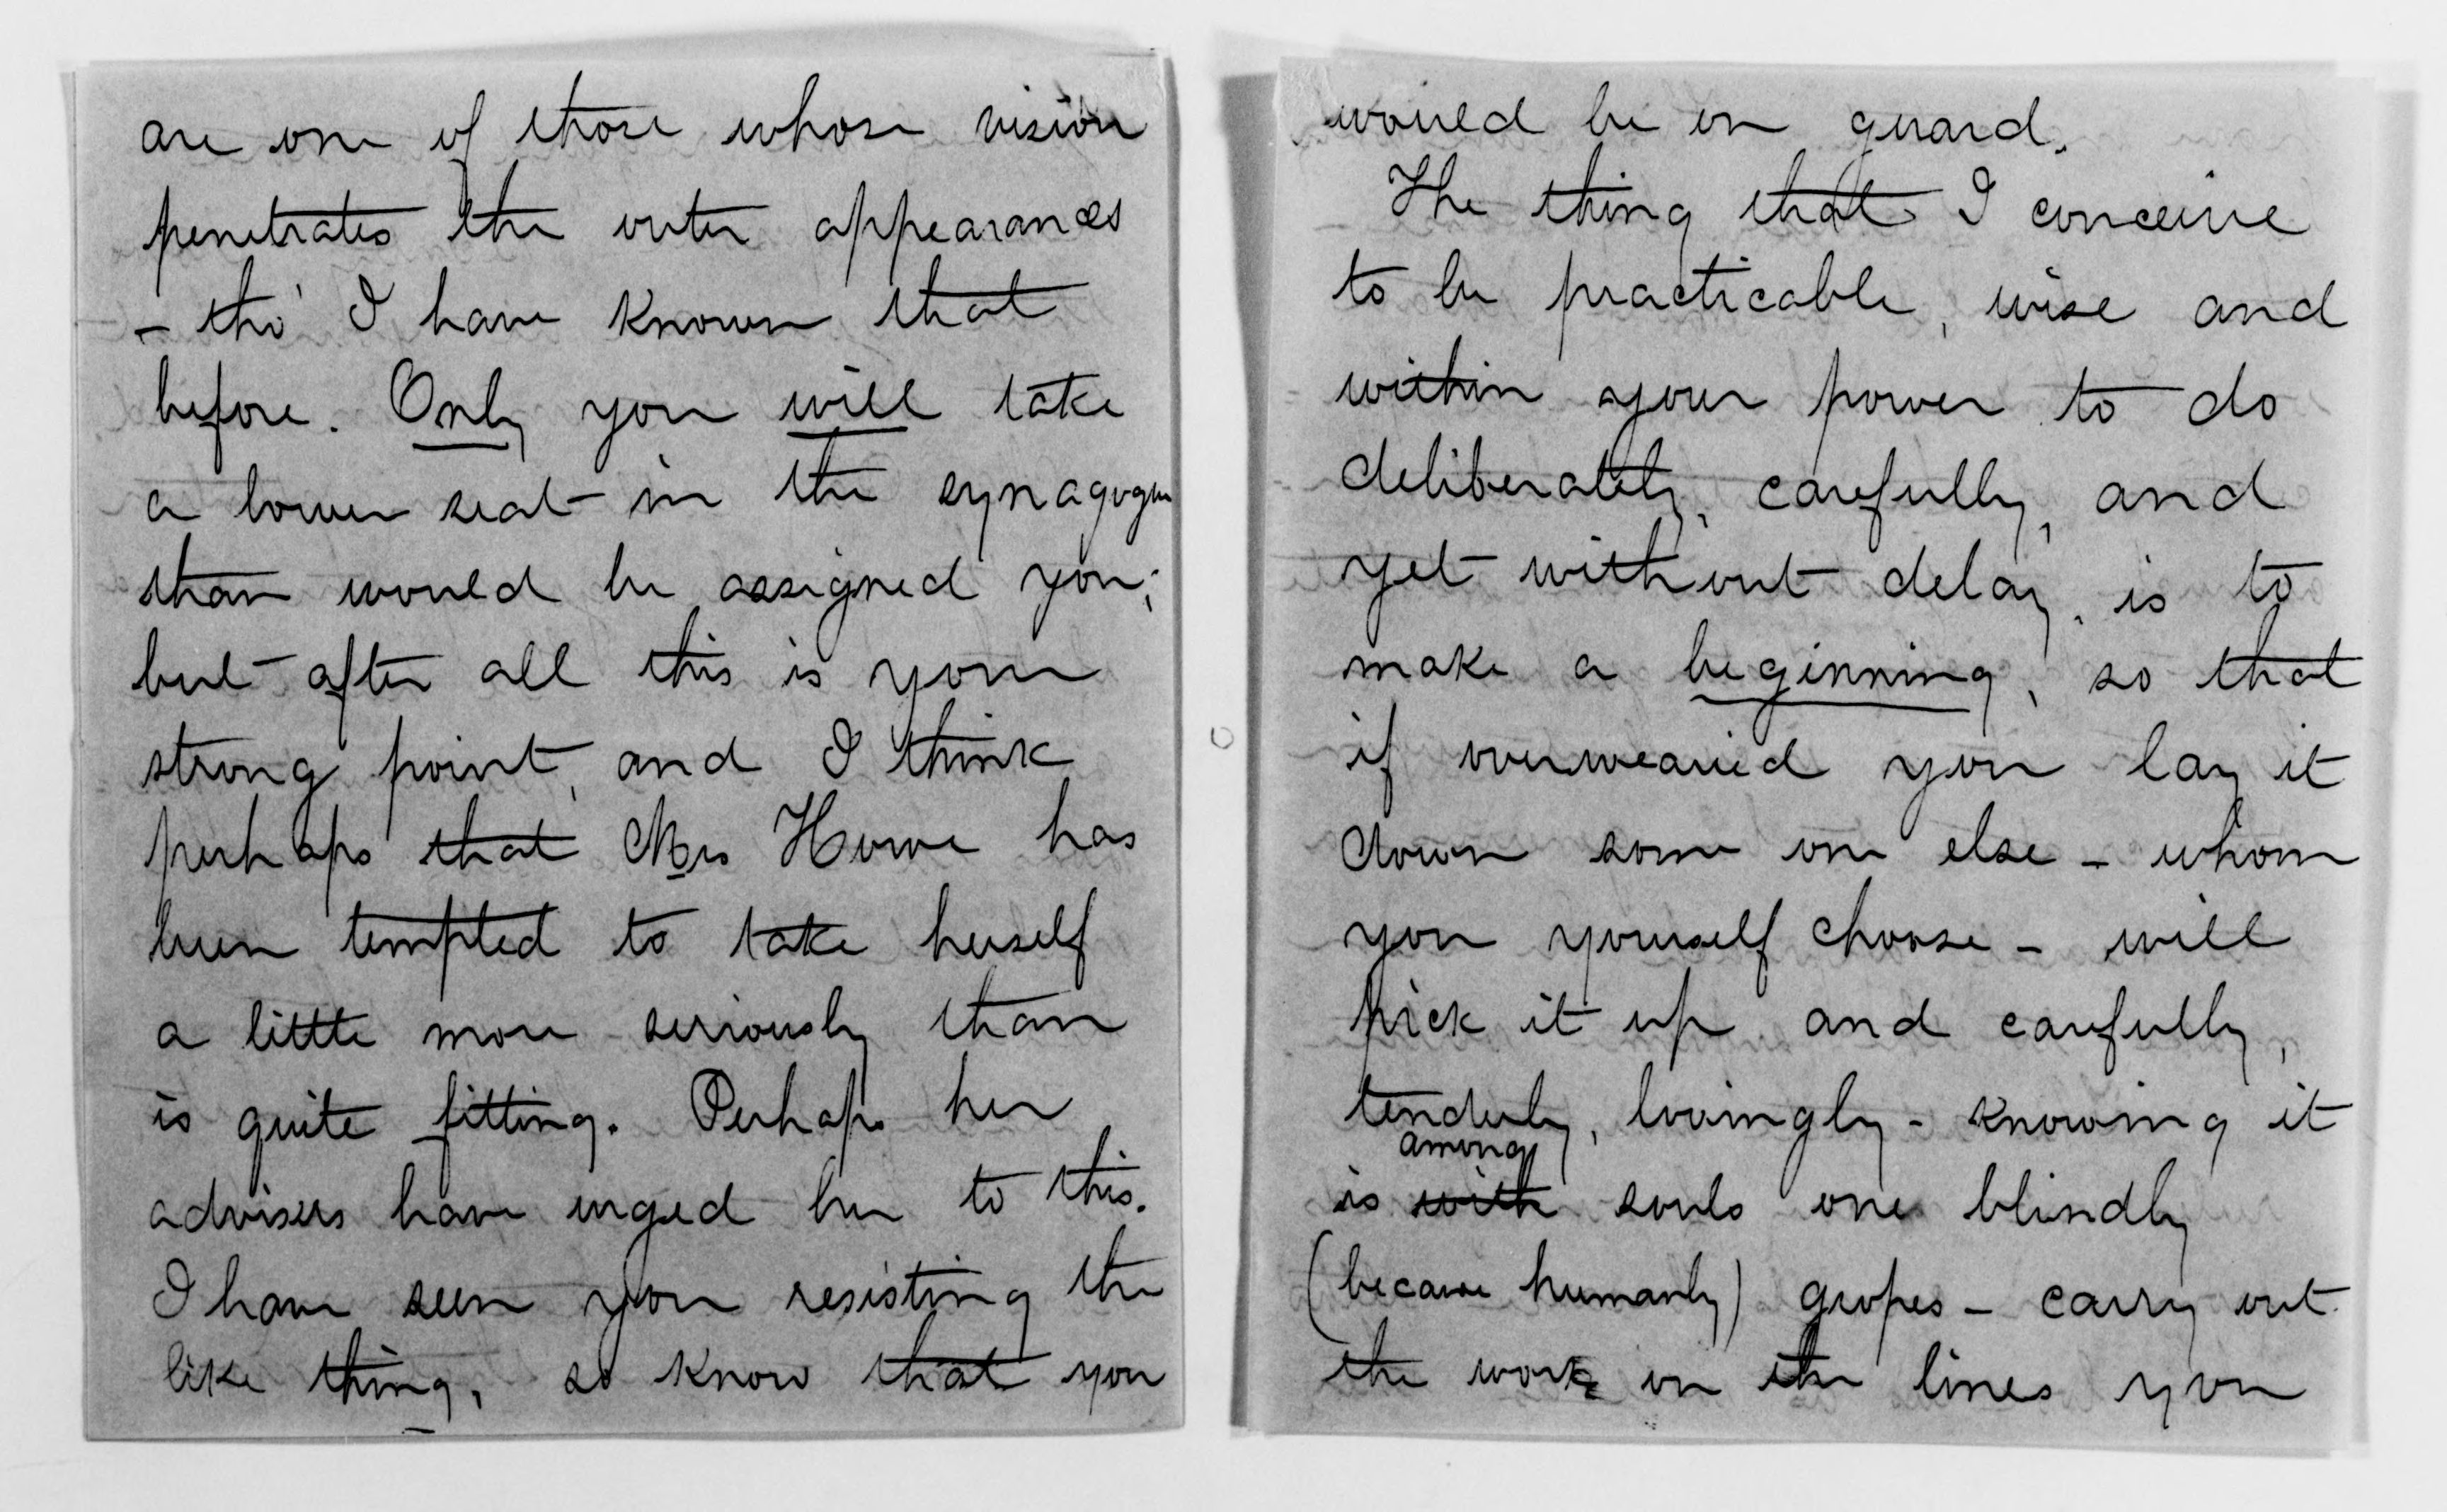 are one of those whose vision
penetrates the outer appearances
- tho' I have known that
before. Only you will take
a lower seat in the synagogue
than would be assigned you;
but after all this is your
strong point, and I think
perhaps that Mrs Howe has
been tempted to take herself
a little more seriously than
is quite fitting. Perhaps her
advisers have urged her to this.
I have seen you resisting the
like thing, so know that you
would be on guard.
The thing that I conceive
to be practicable, wise and
within your power to do
deliberately, carefully, and
yet without delay, is to
make a beginning, so that
if overwearied you lay it
down some one else - whom
you yourself choose - will
pick it up and carefully,
tenderly, lovingly - knowing it
among
is with souls one blindly
(because humanly) gropes - carry out
the work on the lines you